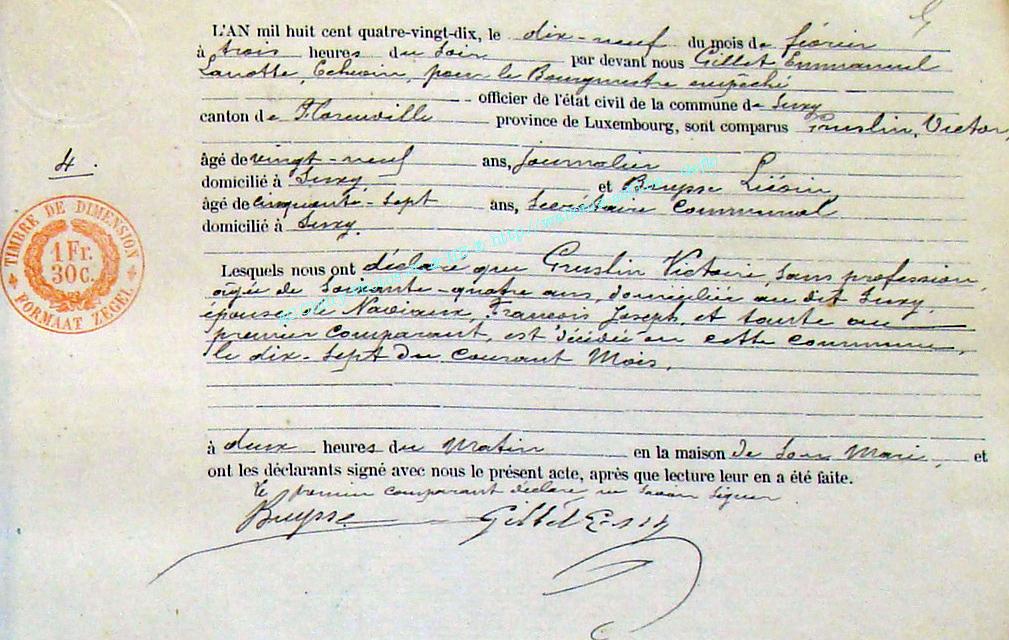 L'AN mil huit cent quatre-vingt-dix, le dix-neuf du mois de février
à trois heures du soir par devant nous Gillet Emmanuel
Echevin, pour le Bourgmestre empêché
officier de l'état civil de la commune de Suxy
canton de Florenville province de Luxembourg, sont comparus Gruslin, Victor,
4.
âgé de vingt-neuf ans, journalier
domicilié à Suxy, et Buysse
âgé de cinquante-sept ans, Secrétaire Communal
domicilié à Suxy.
TIMBRE DE DIMENSION
1 Fr.
30 C.
FORMAAT ZEGEL
Lesquels nous ont déclaré que Gruslin Victoire, sans profession,
agée de soixante-quatre ans, domiciliée au dit Suxy,
épouse de François Joseph, et tante au
premier comparant, est décédée en cette commune,
le dix-sept du courant mois,
à deux heures du matin en la maison de son mari, et
ont les déclarants signé avec nous le présent acte, après que lecture leur en a été faite.
Le premier comparant déclare ne savoir signer
Buysse Gillet